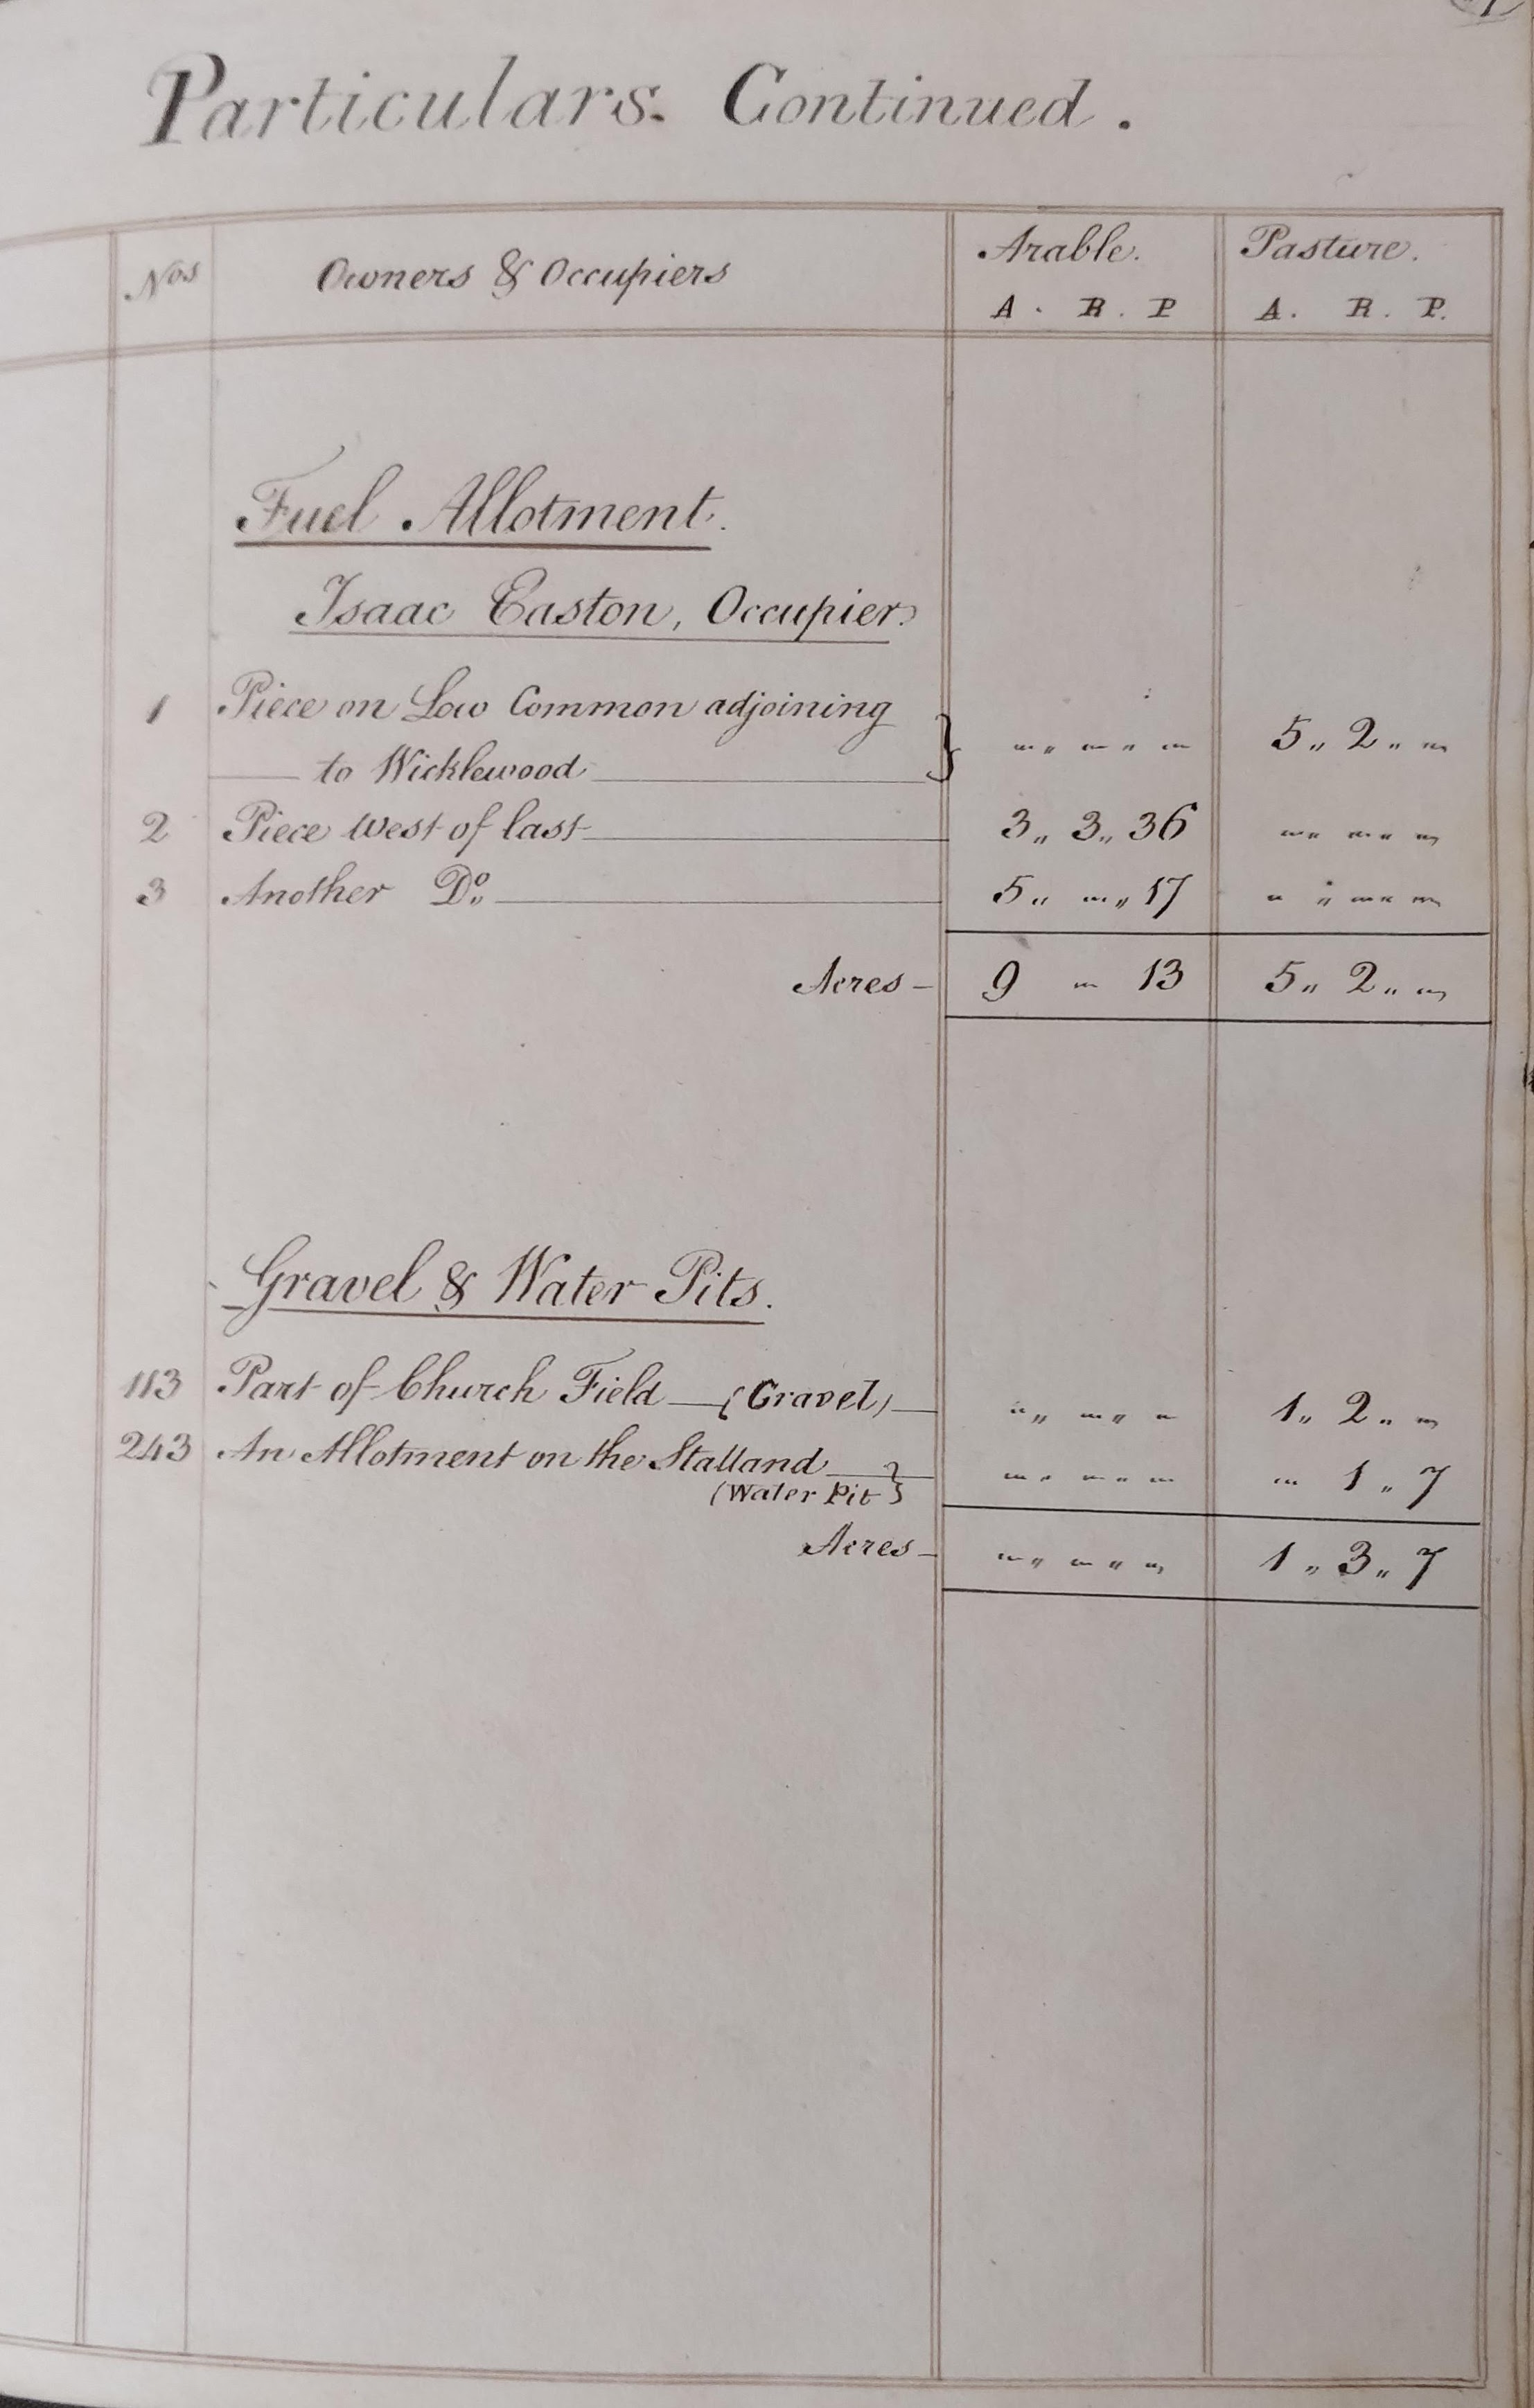 Particulars. Continued.
Nos Owners & Occupiers Arable. Pasture.
A. R. P A. R. P.
Fuel Allotment.
Isaac Easton, Occupier.
1 Piece on Low Common adjoining
to Wicklewood } „ „ 5 „ 2 „
2 Piece West of last 3 „ 3 „ 36 „ „
3 Another Do. 5 „ „ 17 „ „
Acres 9 13 5 „ 2 „
Gravel & Water Pits.
113 Part of Church Field (Gravel) „ „ 1 „ 2 „
243 An Allotment on the Stalland „ „ 1 „ 7
(Water Pit }
Acres „ „ 1 „ 3 „ 7